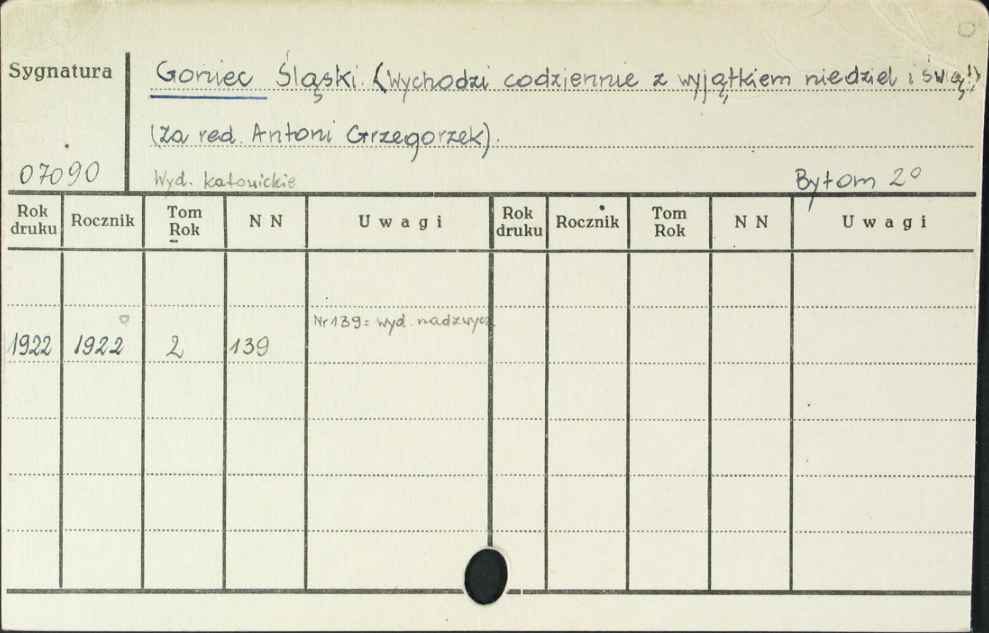 Sygnatura
Goniec Śląski. (Wychodzi codziennie z wyjątkiem niedziel i świąt)
(Za red. Antoni Grzegorzek).
07090
Wyd. katowickie
Bytom 2°
Rok druku Rocznik Tom Rok N N Uwagi Rok druku Rocznik Tom Rok N N Uwagi
Nr 139 = wyd. nadzwycz.
1922 1922 2 139